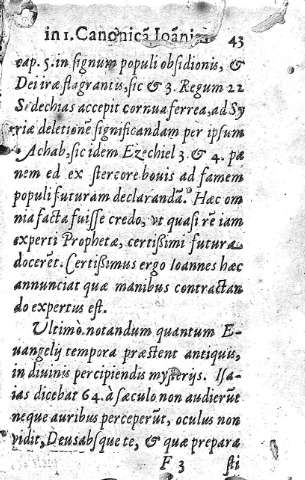 in 1. Canonicã Ioãnis 43
cap. 5. in signum populi obsidionis, &
Dei iræ flagrantis, sic & 3. Regum 22
Sedechias accepit cornua ferrea, ad Sy
riæ deletionẽ significandam per ipsum
Achab, sic idem Ezechiel 3. & 4. pa
nem ed ex stercore bouis ad famem
populi futuram declarandã. Hæc om
nia facta fuisse credo, vt quasi rẽ iam
experti Prophetæ, certißimi futura
docerẽt. Certißimus ergo Ioannes hæc
annunciat quæ manibus contractan
do expertus est.
Ultimò notandum quantum E-
uangelij tempora præstent antiquis,
in diuinis percipiendis mysterijs. Isa-
ias dicebat 64. à sæculo non audierũt
neque auribus perceperũt, oculus non
vidit, Deus absque te, & quæ præpara
F 3 sti